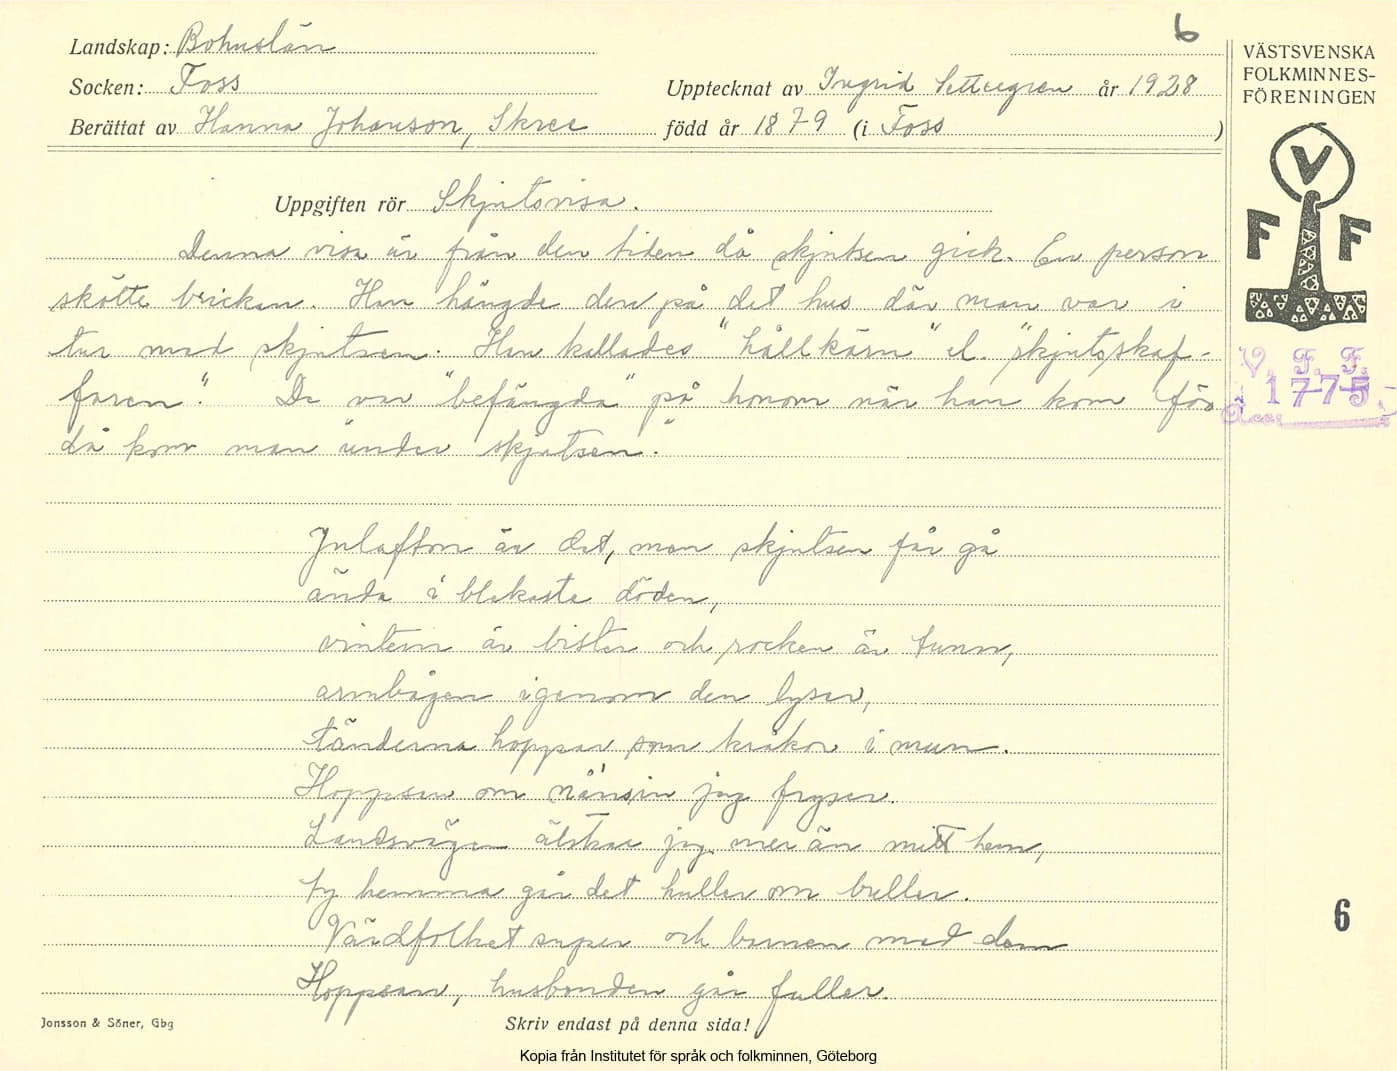 6
Landskap: Bohuslän
Socken: Foss
Upptecknat av Ingrid Settergren år 1928
Berättat av Hanna Johanson, Skree född år 1879 (i Foss)
VÄSTSVENSKA
FOLKMINNES-
FÖRENINGEN
V
F F
V. F. F.
1775
Acc.
Uppgiften rör Skjutsvisa.
Denna visa är från den tiden då skjutsen gick. En person
skötte brickan. Han hängde den på det hus där man var i
tur med skjutsen. Han kallades "hållkärn" el. "skjutsskaf-
faren". De var "befängda" på honom när han kom för
då kom man under skjutsen."
Julafton är det, men skjutsen får gå
ända i blekaste döden,
vintern är bister och rocken är tunn,
armbågen igenom den lyser,
tänderna hoppar som kråkor i mun.
Hoppsan om nånsin jag fryser.
Landsvägen älskar jag mer än mitt hem,
ty hemma går det huller om buller.
Värdfolket super och barnen med dem
Hoppsan, husbonden går fuller.
6
Jonsson & Söner, Gbg
Skriv endast på denna sida!
Kopia från Institutet för språk och folkminnen, Göteborg